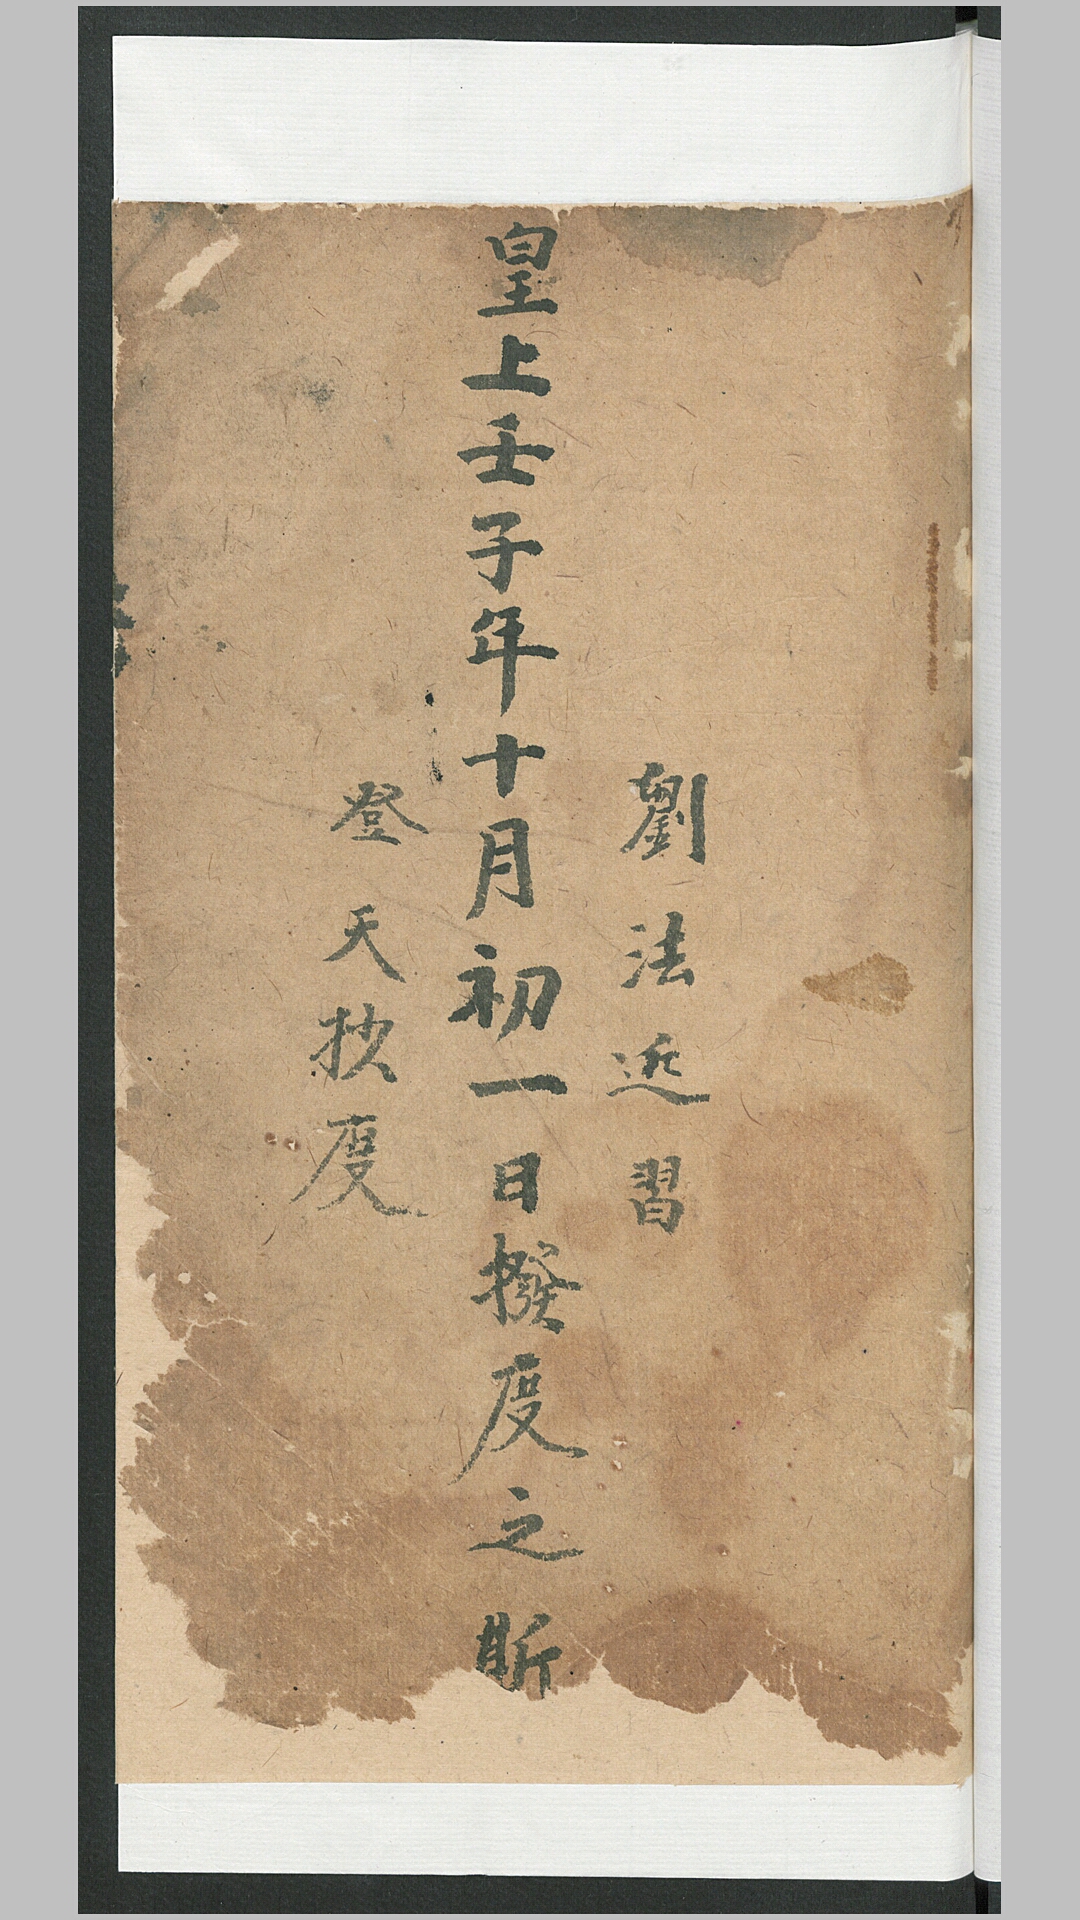 劉法近習
皇上壬子年十月初一日撥度之所
登天抄度